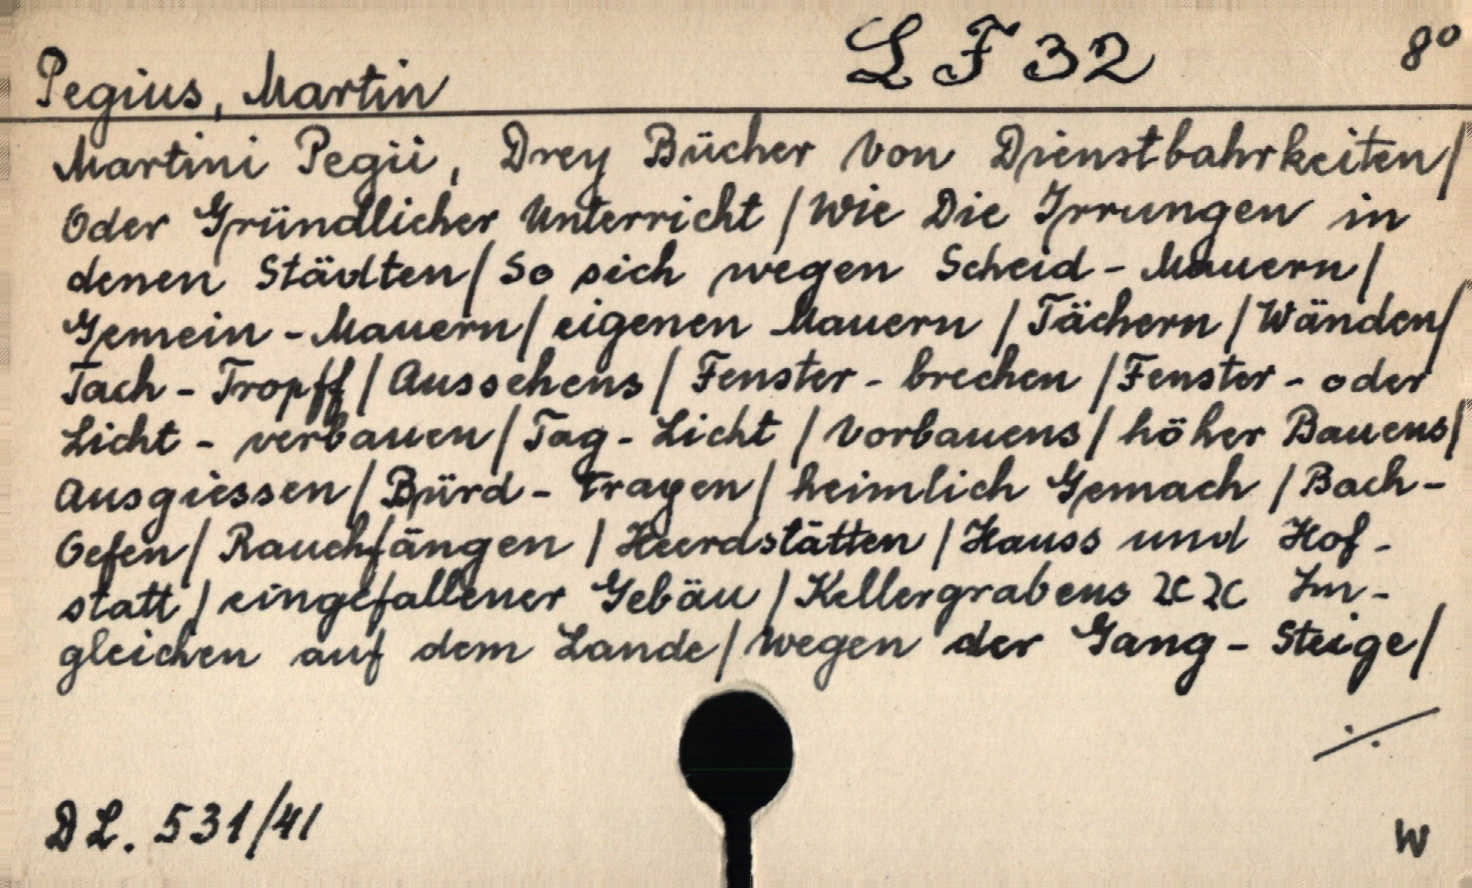 Pegius, Martin L F 32 8°
Martini Pegii, Drey Bücher Von Dienstbahrkeiten/
Oder Gründlicher Unterricht / Wie Die Irrungen in
denen Städten / So sich wegen Scheid - Mauern /
Gemein - Mauern / eigenen Mauern / Tächern / Wänden /
Tach - Tropff / Aussehens / Fenster - brechen / Fenster - oder
Licht - verbauen / Tag - Licht / Vorbauens / höher Bauens /
Ausgiessen / Bürd - Tragen / heimlich Gemach / Bach -
Oefen / Rauchfängen / Heerdstätten / Hauss und Hof -
statt / eingefallener Gebäu / Kellergrabens ꝛc ꝛc Im -
gleichen auf dem Lande / wegen der Gang - Steige /
./.
D L. 531/41 W